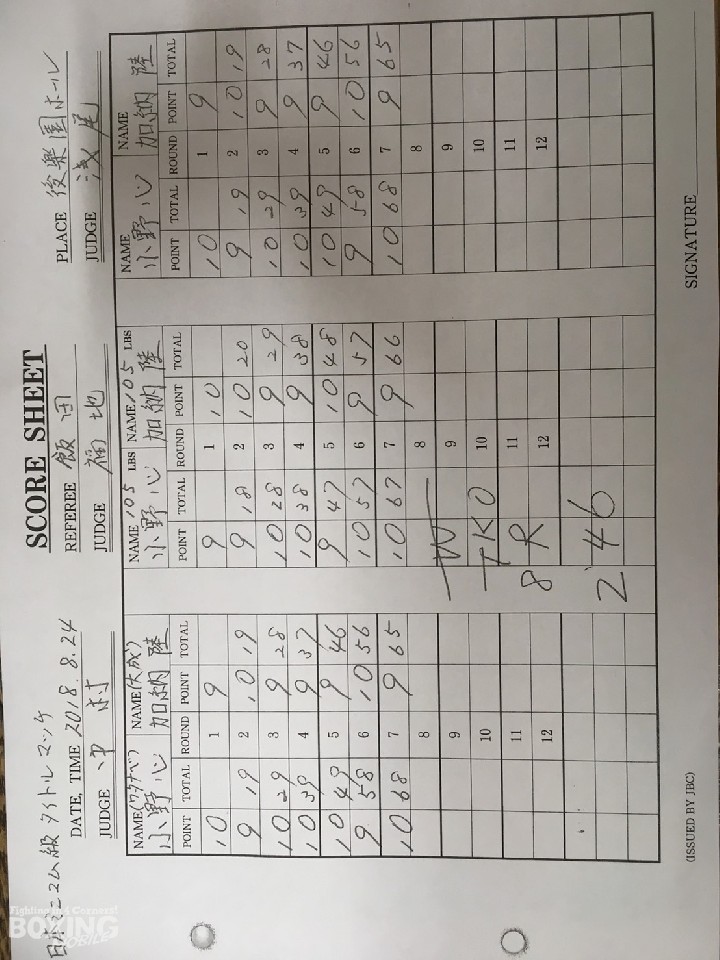 日本ミニマム級タイトルマッチ
SCORE SHEET
DATE, TIME 2018.8.24
REFEREE 飯田
PLACE 後楽園ホール
JUDGE 中村
JUDGE 福地
JUDGE 浅尾
NAME(ワタナベ) NAME(大成)
小野心 加納陸
POINT TOTAL ROUND POINT TOTAL
10 1 9
9 19 2 10 19
10 29 3 9 28
10 39 4 9 37
10 49 5 9 46
9 58 6 10 56
10 68 7 9 65
8
9
10
11
12
NAME 105 LBS NAME 105 LBS
小野心 加納陸
POINT TOTAL ROUND POINT TOTAL
9 1 10
9 18 2 10 20
10 28 3 9 29
10 38 4 9 38
9 47 5 10 48
10 57 6 9 57
10 67 7 9 66
8
W 9
TKO 10
8R 11
12
2'46
NAME NAME
小野心 加納陸
POINT TOTAL ROUND POINT TOTAL
10 1 9
9 19 2 10 19
10 29 3 9 28
10 39 4 9 37
10 49 5 9 46
9 58 6 10 56
10 68 7 9 65
8
9
10
11
12
(ISSUED BY JBC)
SIGNATURE
Fighting in 4 Corners!
BOXING
MOBILE